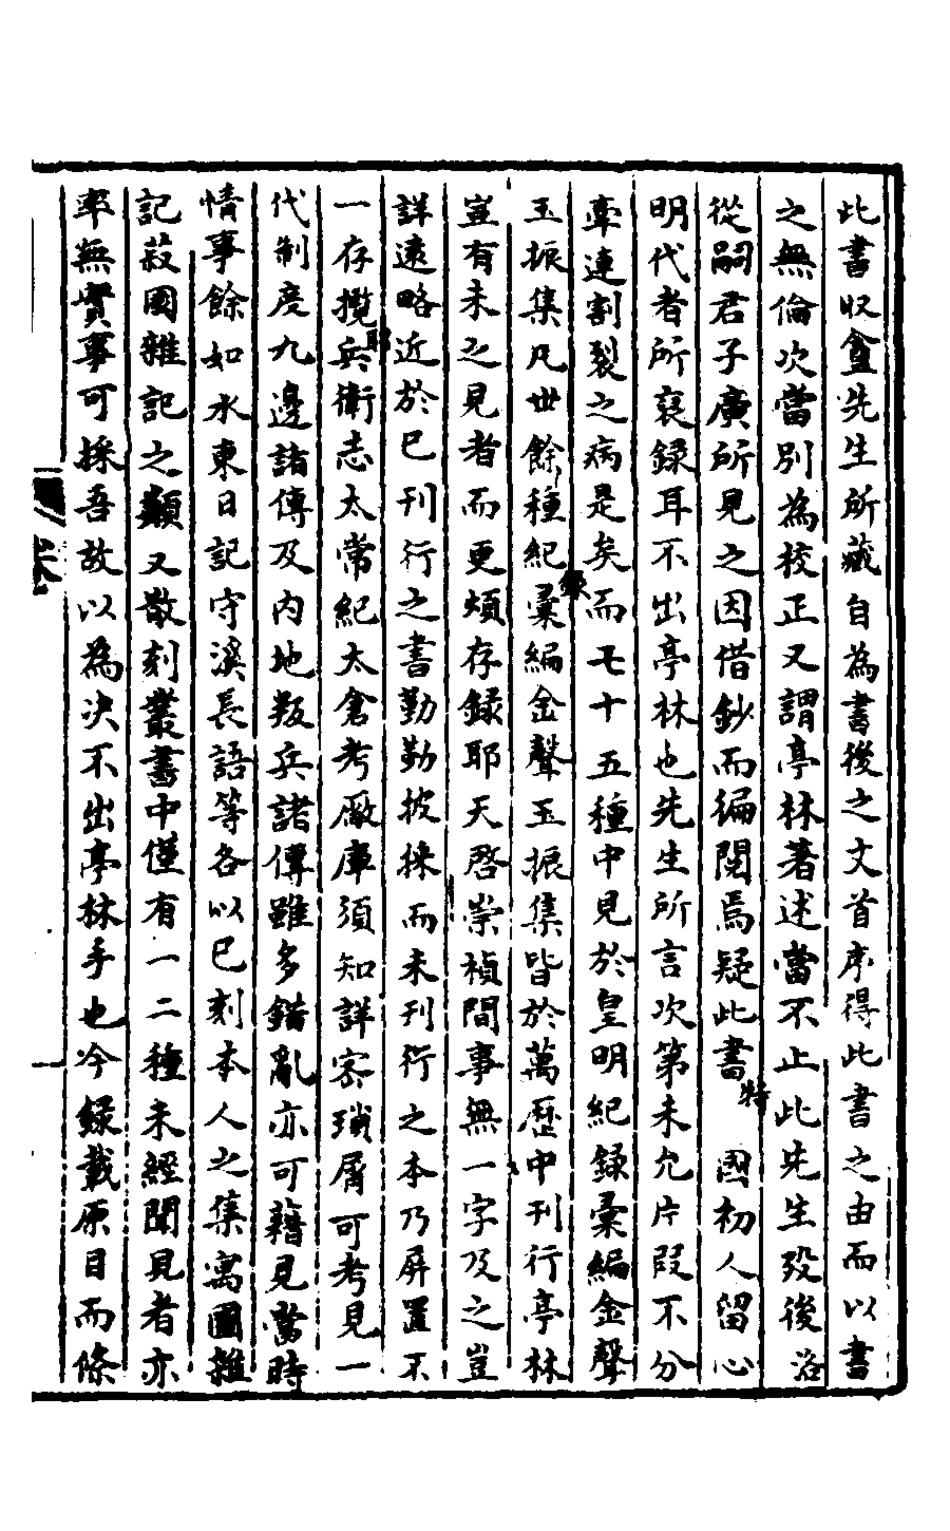 此書収盦先生所藏自為書後之文首序得此書之由而以書
之無倫次當別為校正又謂亭林著述當不止此先生歿後洺
從嗣君子廣所見之因借鈔而徧閱焉疑此書特國初人留心
明代者所裒録耳不出亭林也先生所言次第未允片叚不分
牽連割裂之病是矣而七十五種中見於皇明紀錄彙編金聲
玉振集凡丗餘種紀錄彙編金聲玉振集皆於萬歷中刊行亭林
豈有未之見者而更煩存録耶天啓崇禎間事無一字及之豈
詳遠略近於已刊行之書勤勤披揀而未刊行之本乃屏置不
一存攬耶兵衛志太常紀太倉考厰庫須知詳宻瑣屑可考見一
代制度九邊諸傳及内地叛兵諸傳雖多錯亂亦可藉見當時
情事餘如水東日記守溪長語等各以已刻本人之集寓圃雜
記菽園雜記之類又散刻叢書中僅有一二種未經聞見者亦
率無實事可採吾故以為决不出亭林手也今録載原目而條